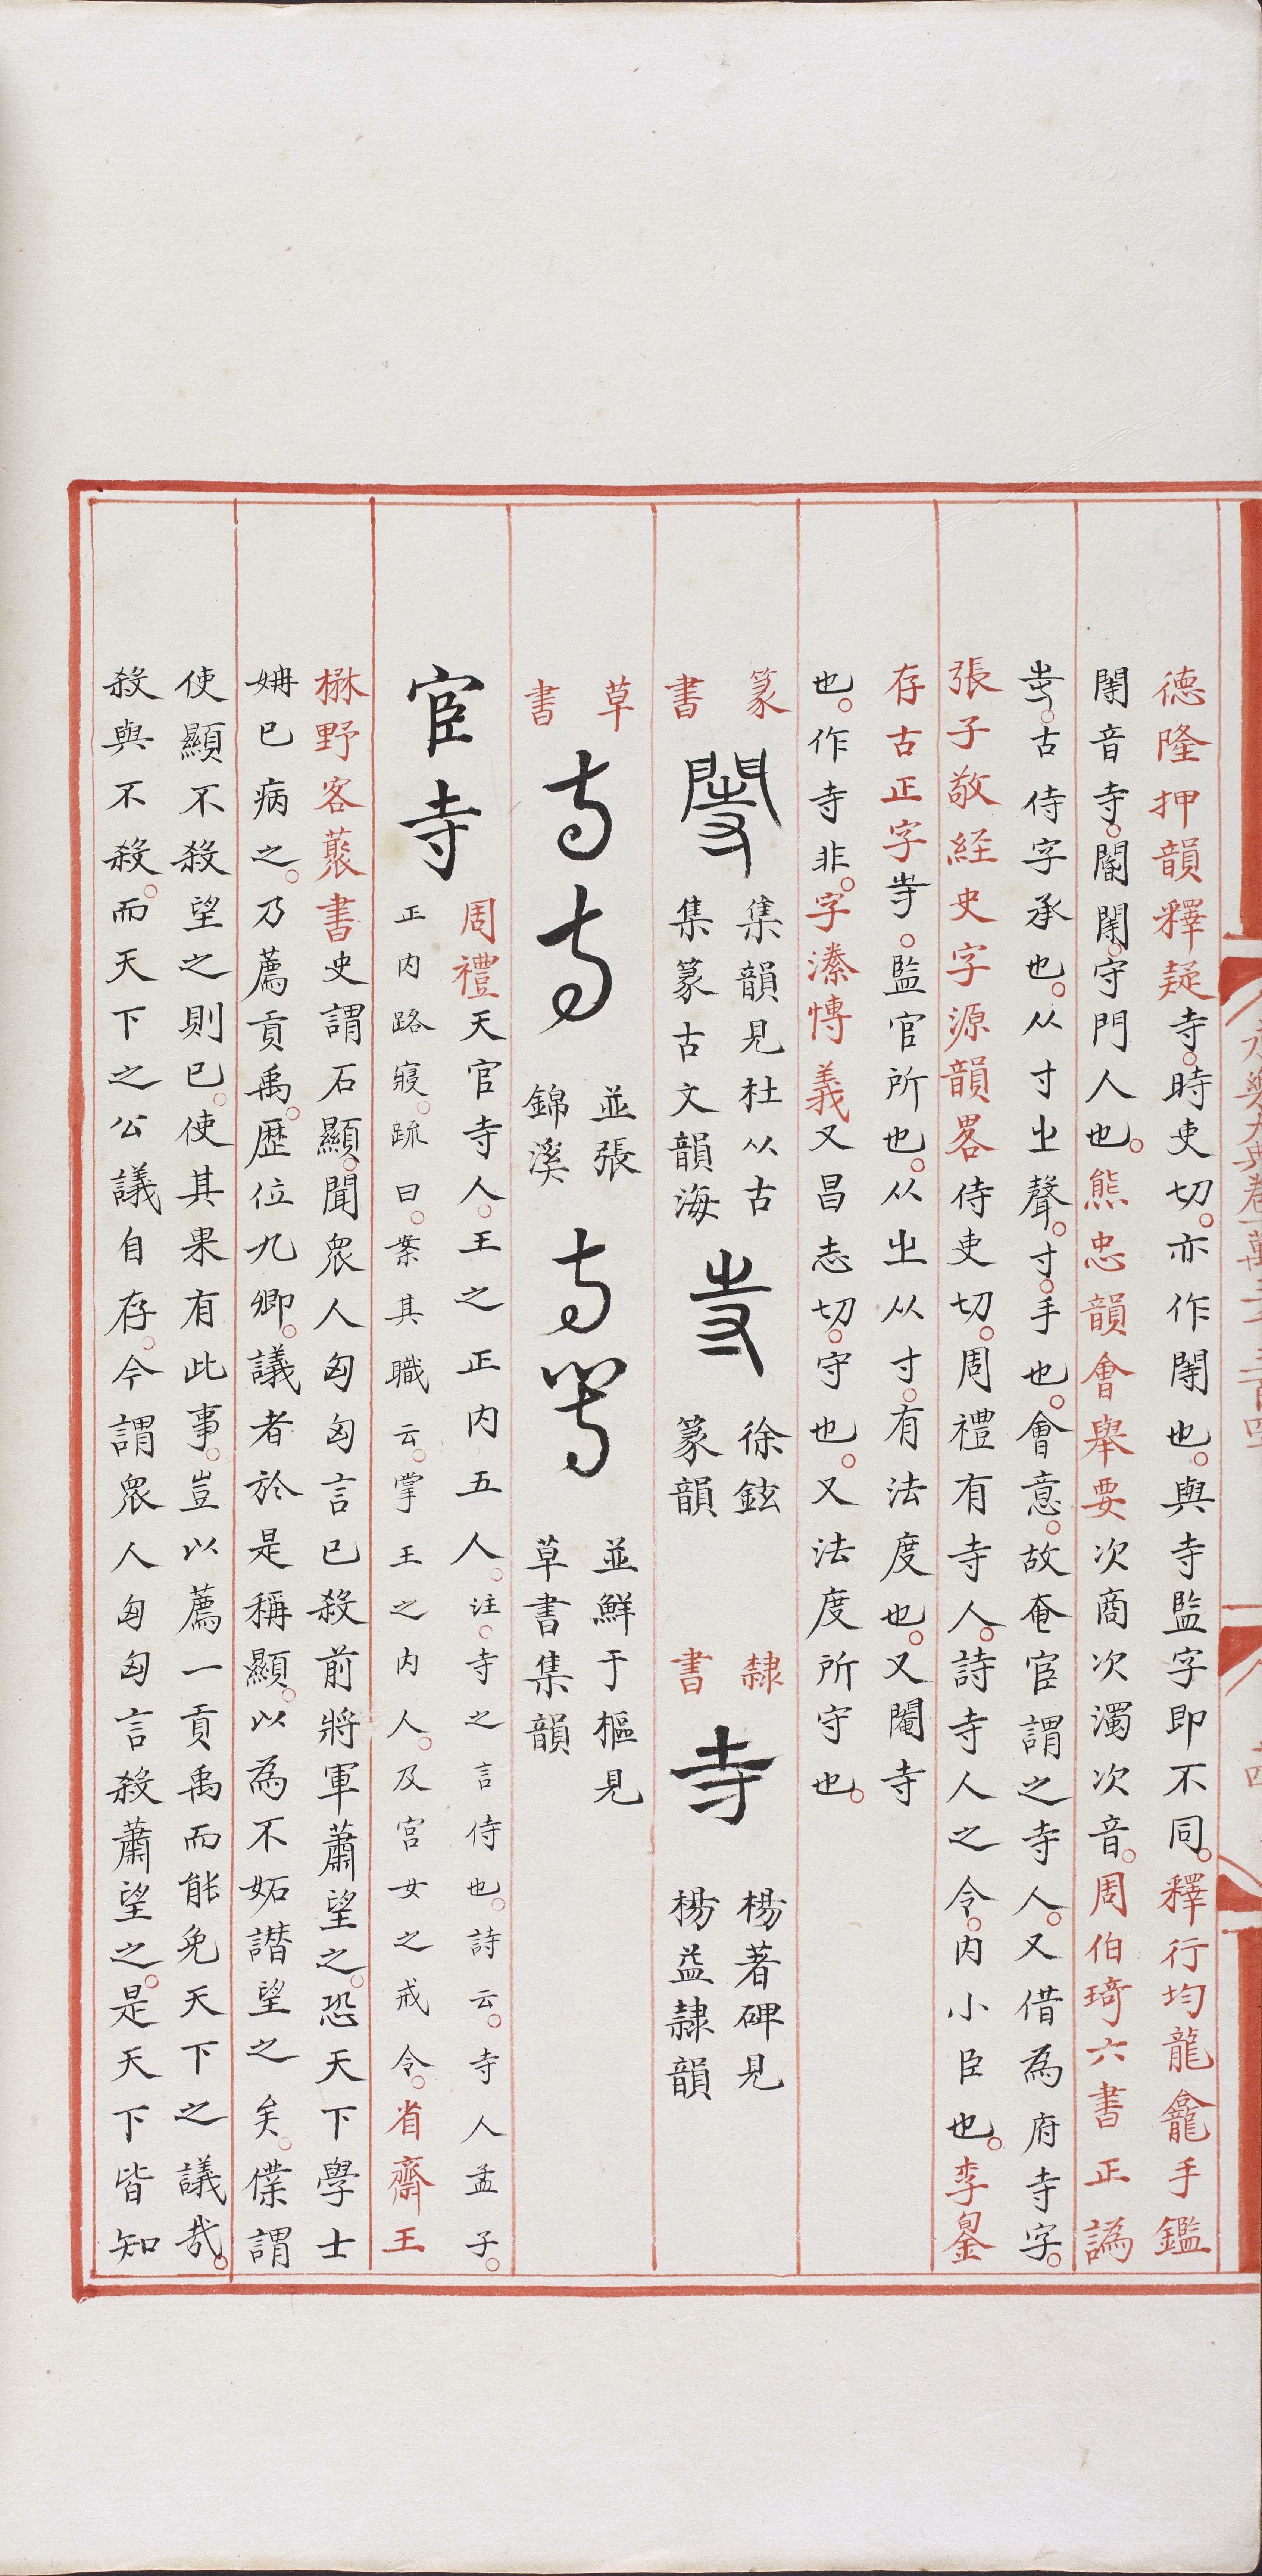 永樂大典卷一萬三千三百四
德隆押韻釋疑寺。時吏切。亦作閽也。與寺監字即不同。釋行均龍龕手鑑
閽音寺。閹閽。守門人也。熊忠韻會舉要次商次濁次音。周伯琦六書正譌
㞢。古侍字承也。从寸㞢聲。寸。手也。會意。故奄宦謂之寺人。又借為府寺字。
張子敬經史字源韻畧侍吏切。周禮有寺人。詩寺人之令。內小臣也。李鋆
存古正字㞢。監官所也。从㞢从寸。有法度也。又閹寺
也。作寺非。字潫博義又昌志切。守也。又法度所守也。
篆書
集韻見杜从古
集篆古文韻海
徐鉉
篆韻
隸書
寺
楊著碑見
楊益隸韻
草書
並張
錦溪
並鮮于樞見
草書集韻
宦寺
周禮天官寺人。王之正內五人。注。寺之言侍也。詩云。寺人孟子。
正內路寢。疏曰。案其職云。掌王之內人。及宮女之戒令。省齋王
楙野客蕞書史謂石顯。聞衆人匈匈言已殺前將軍蕭望之。恐天下學士
姍已病之。乃薦貢禹。歷位九卿。議者於是稱顯。以為不妬譖望之矣。僕謂
使顯不殺望之則已。使其果有此事。豈以薦一貢禹而能免天下之議哉。
殺與不殺。而天下之公議自存。今謂衆人匈匈言殺蕭望之。是天下皆知